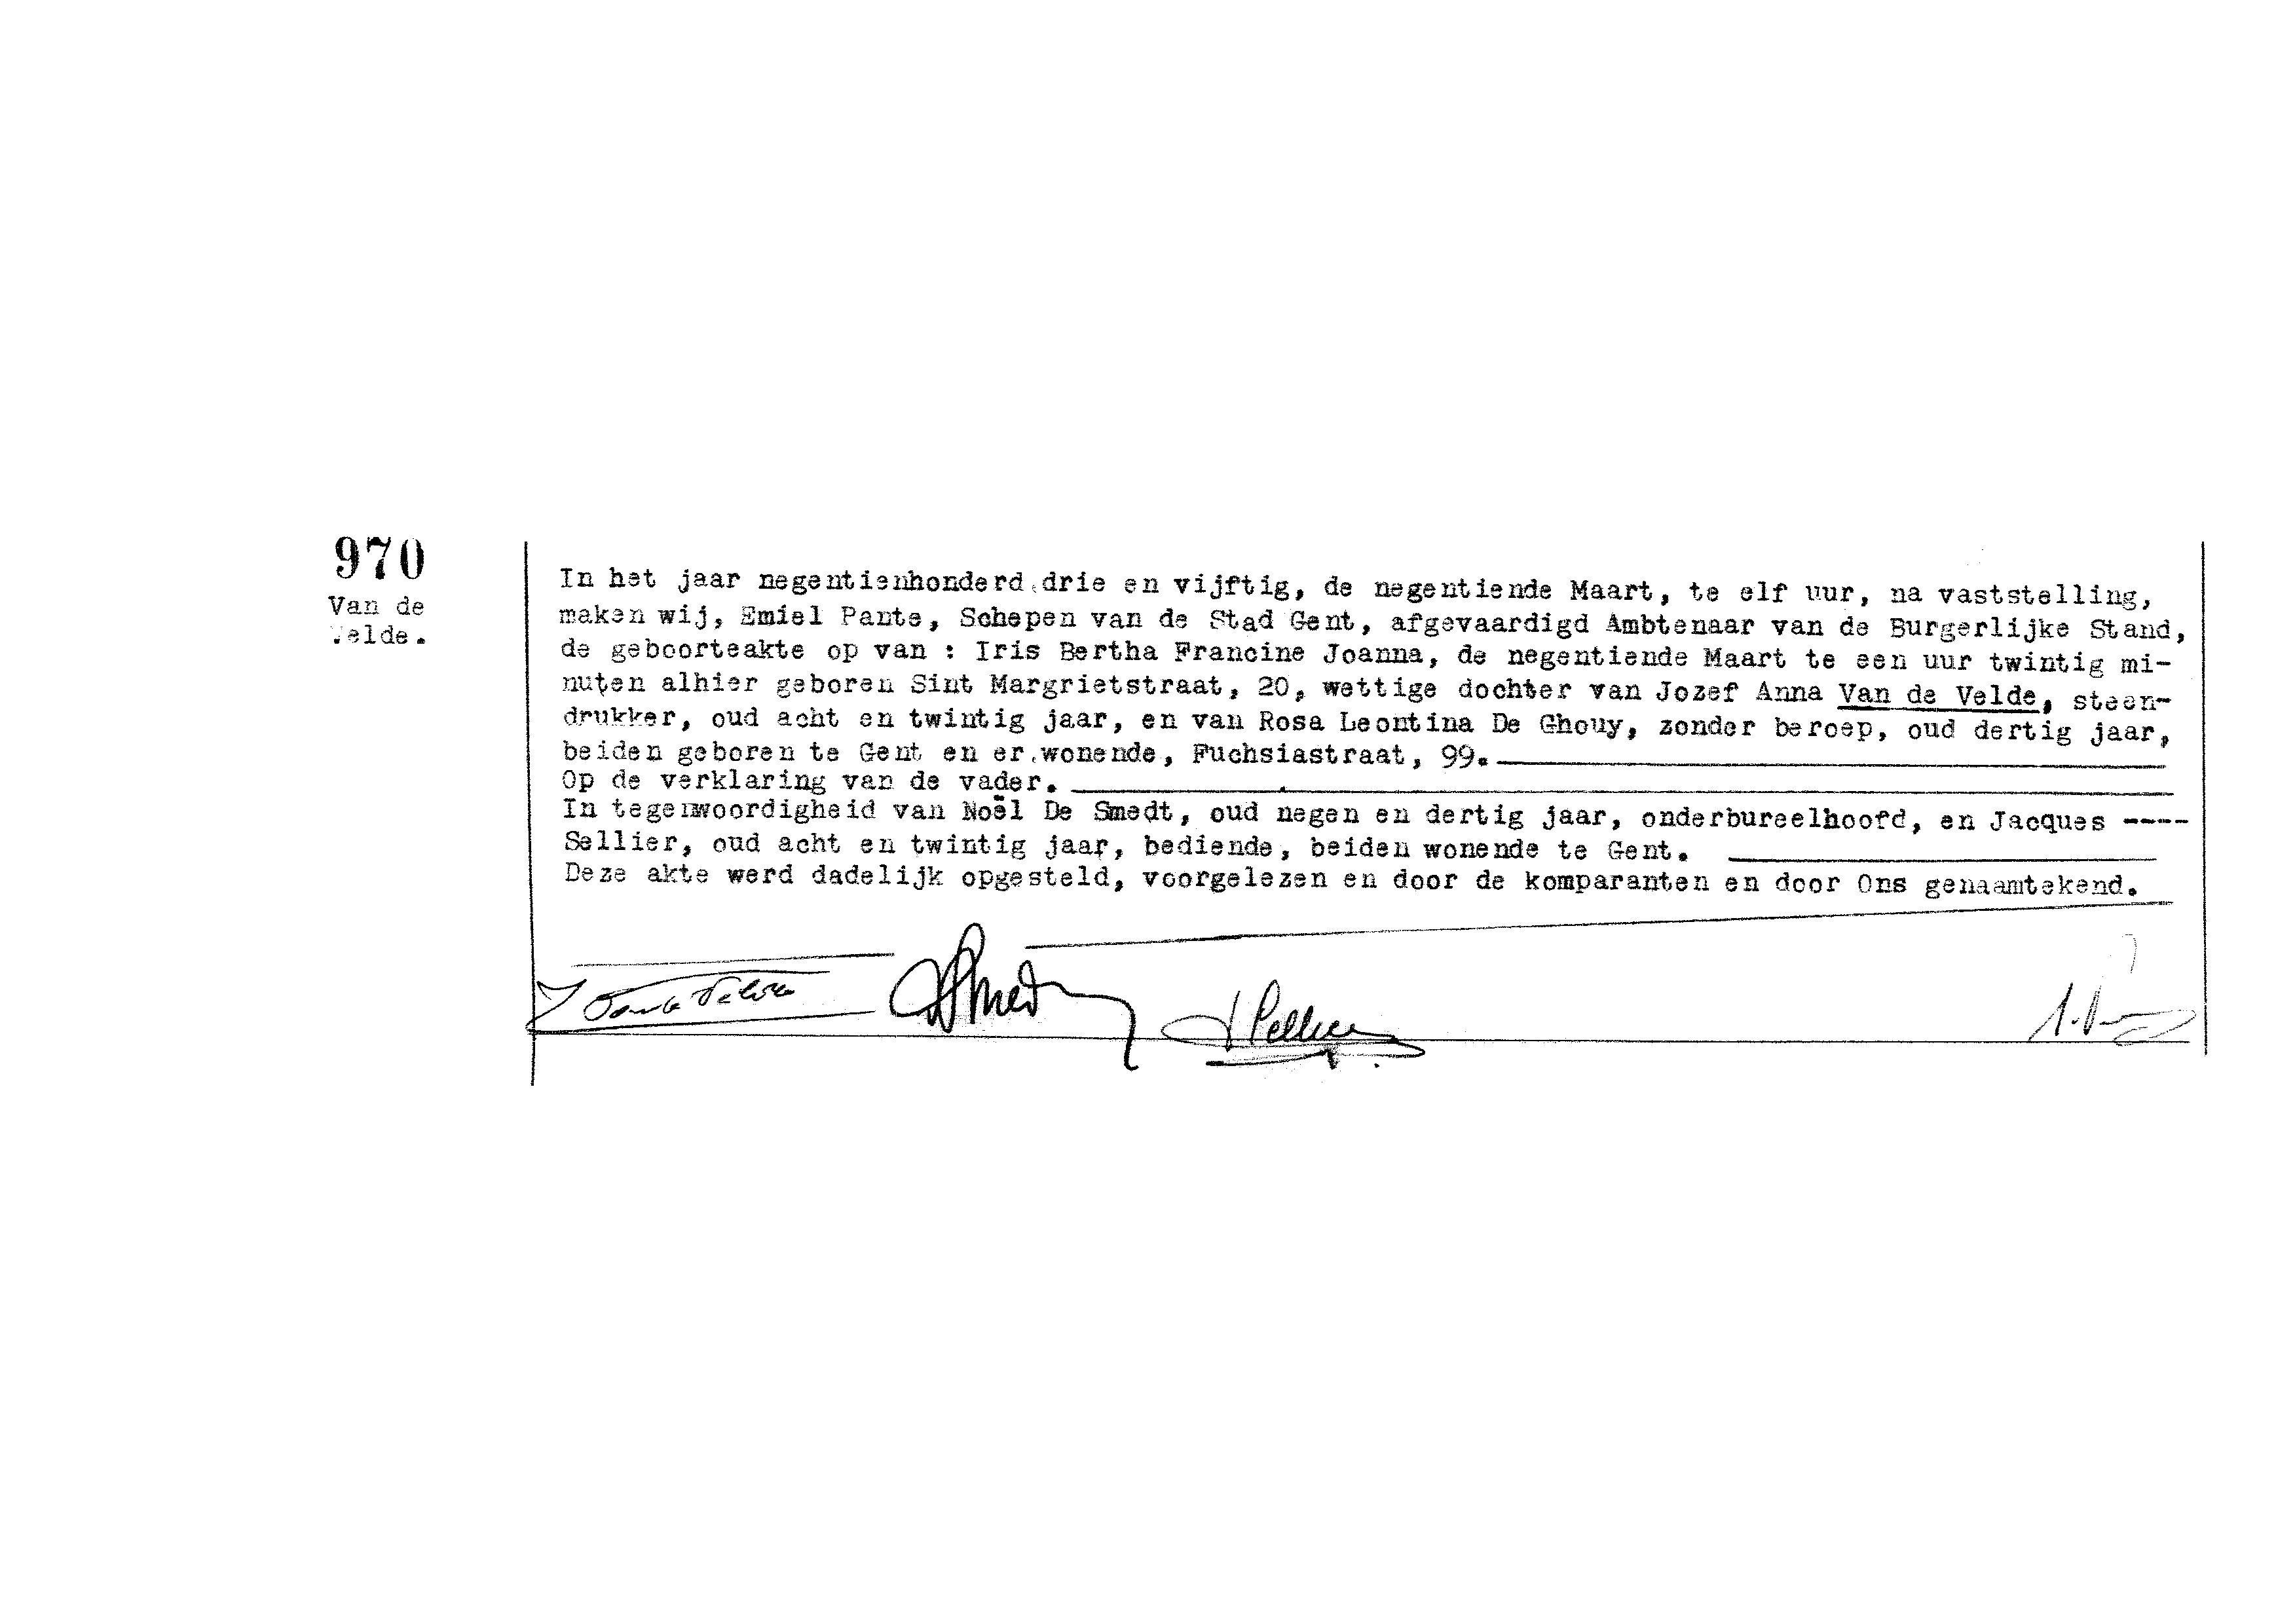 970
Van de
Velde.
In het jaar negentienhonderd drie en vijftig, de negentiende Maart, te elf uur, na vaststelling,
maken wij, Emiel Pante, Schepen van de Stad Gent, afgevaardigd Ambtenaar van de Burgerlijke Stand,
de geboorteakte op van : Iris Bertha Francine Joanna, de negentiende Maart te een uur twintig mi-
nuten alhier geboren Sint Margrietstraat, 20, wettige dochter van Jozef Anna Van de Velde, steen-
drukker, oud acht en twintig jaar, en van Rosa Leontina De Ghouy, zonder beroep, oud dertig jaar,
beiden geboren te Gent en er wonende, Fuchsiastraat, 99.
Op de verklaring van de vader.
In tegenwoordigheid van Noël De Smedt, oud negen en dertig jaar, onderbureelhoofd, en Jacques ----
Sellier, oud acht en twintig jaar, bediende, beiden wonende te Gent.
Deze akte werd dadelijk opgesteld, voorgelezen en door de komparanten en door Ons genaamtekend.